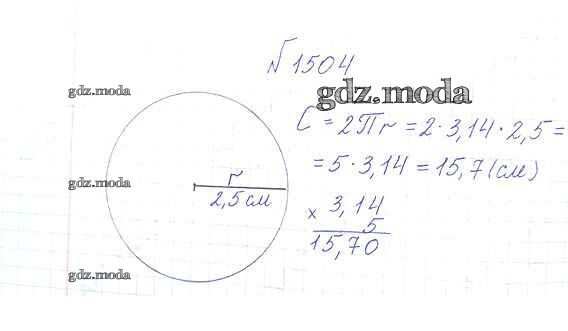 №1504
gdz.moda
gdz.moda
C = 2Пr = 2·3,14·2,5 =
= 5·3,14 = 15,7 (см)
gdz.moda
r
2,5 см
× 3,14
5
15,70
gdz.moda